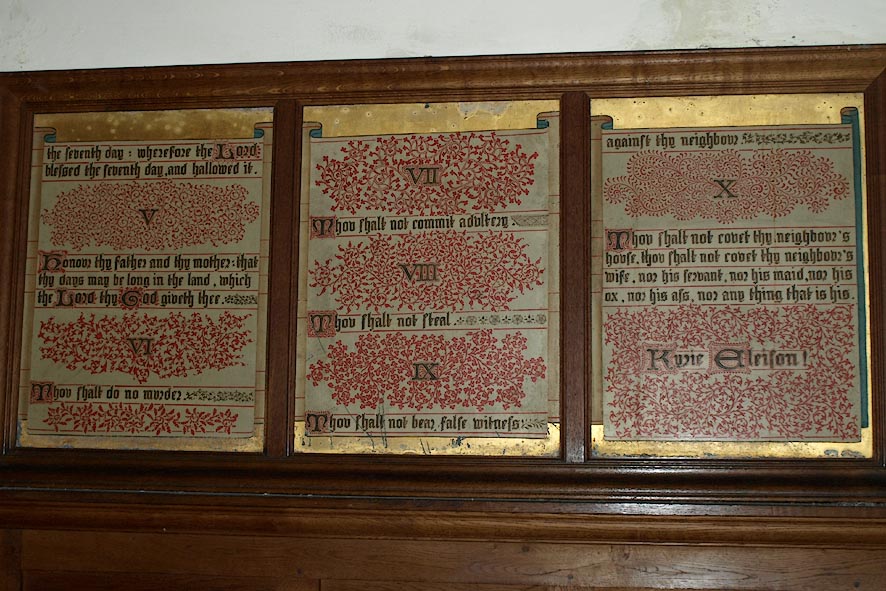 the seventh day : wherefore the Lord
blessed the seventh day, and hallowed it.
V
Honour thy father and thy mother: that
thy days may be long in the land, which
the Lord thy God giveth thee.
VI
Thou shalt do no murder.
VII
Thou shalt not commit adultery.
VIII
Thou shalt not steal.
IX
Thou shalt not bear false witness
against thy neighbour
X
Thou shalt not covet thy neighbour's
house, thou shalt not covet thy neighbour's
wife, nor his servant, nor his maid, nor his
ox, nor his ass, nor any thing that is his.
Kyrie Eleison!